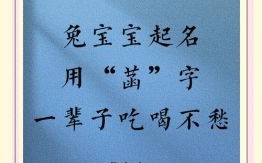 兔宝宝起名
用“菡”字
一辈子吃喝不愁